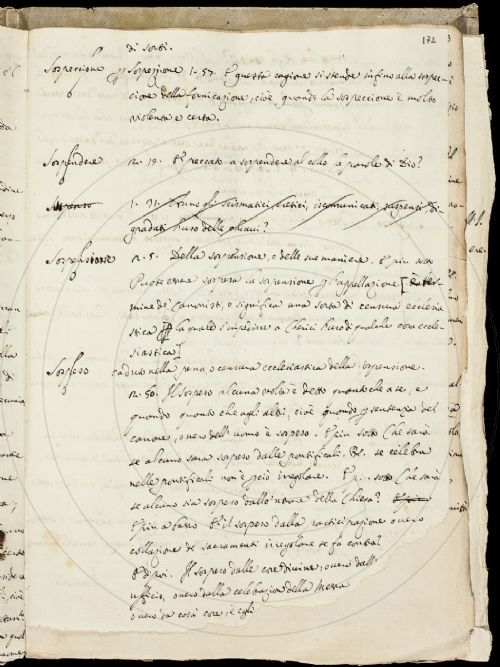 172
di sorti.
Sospeccione p Sospezzione 1. 57. E questa cagione si stende infino alla sospec-
cione della fornicazione, cioè quando la sospeccione è molto
violenta e certa.
Sospendere 2. 19. E peccato a sospendere al collo le parole di Dio?
1. 71. scismatici eretici, iscomunicati, sospensi, di-
gradati l'uso delle chiavi?
Sospensione 2. 5. Della sospensione, e delle sue maniere. E più sotto
Puote essere sospesa la sospensione p l'appellazione [è ter-
mine de' Canonisti, e significa una sorta di censura ecclesia
stica p la quale s'impedisce a' Cherici l'uso di qualche cosa eccle-
siastica]
Sospeso caduto nella pena, o censura ecclesiastica della sospensione.
2. 50. Il sospeso alcuna volta è detto quanto che a se, e
quando quanto che agli altri, cioè quando p sentenza del
canone, o vero dell'uomo è sospeso. E più sotto Che sarà
se alcuno sarà sospeso dalle pontificali. se celebra
nelle pontificali non è perciò irregolare. E più sotto Che sarà
se alcuno sia sospeso dallo della Chiesa?
E più a basso E il sospeso dalla participazione o vero
collazione de' sacramenti irregolare se fa contra?
E di poi. Il sospeso dalle cose divine, o vero dall'
ufficio, o vero dalla celebrazion della Messa
o vero da cotai cose, è egli